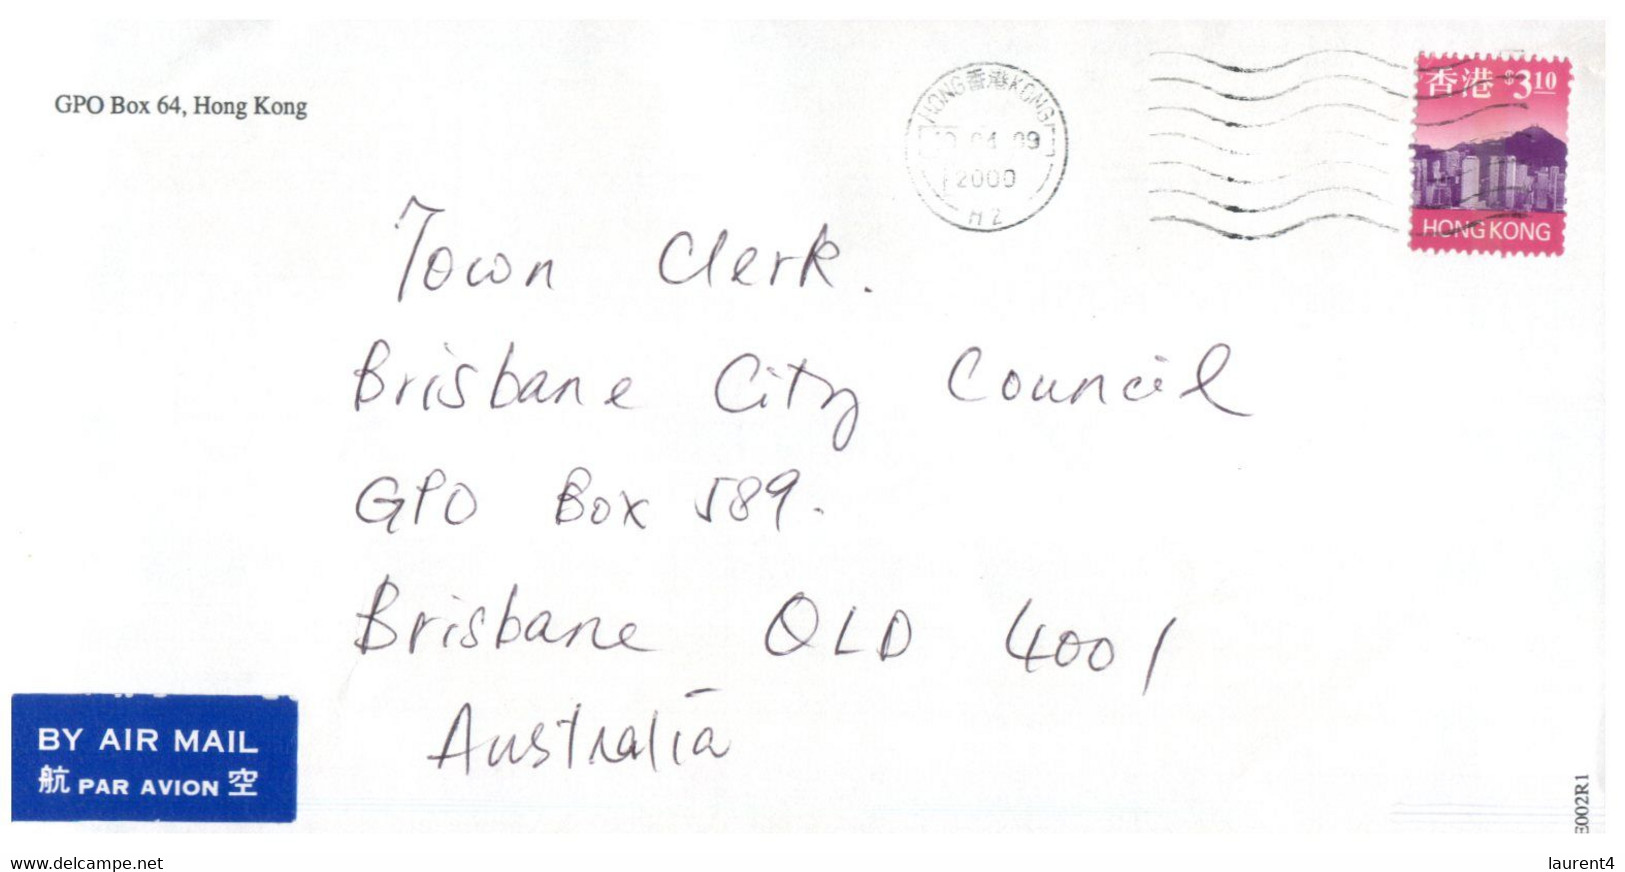 GPO Box 64, Hong Kong
HONG 香港 KONG
2000
香港 $3.10
HONG KONG
Town Clerk.
Brisbane City Council
GPO Box 589.
Brisbane QLD 4001
Australia
BY AIR MAIL
航 PAR AVION 空
E002R1
www.delcampe.net
laurent4